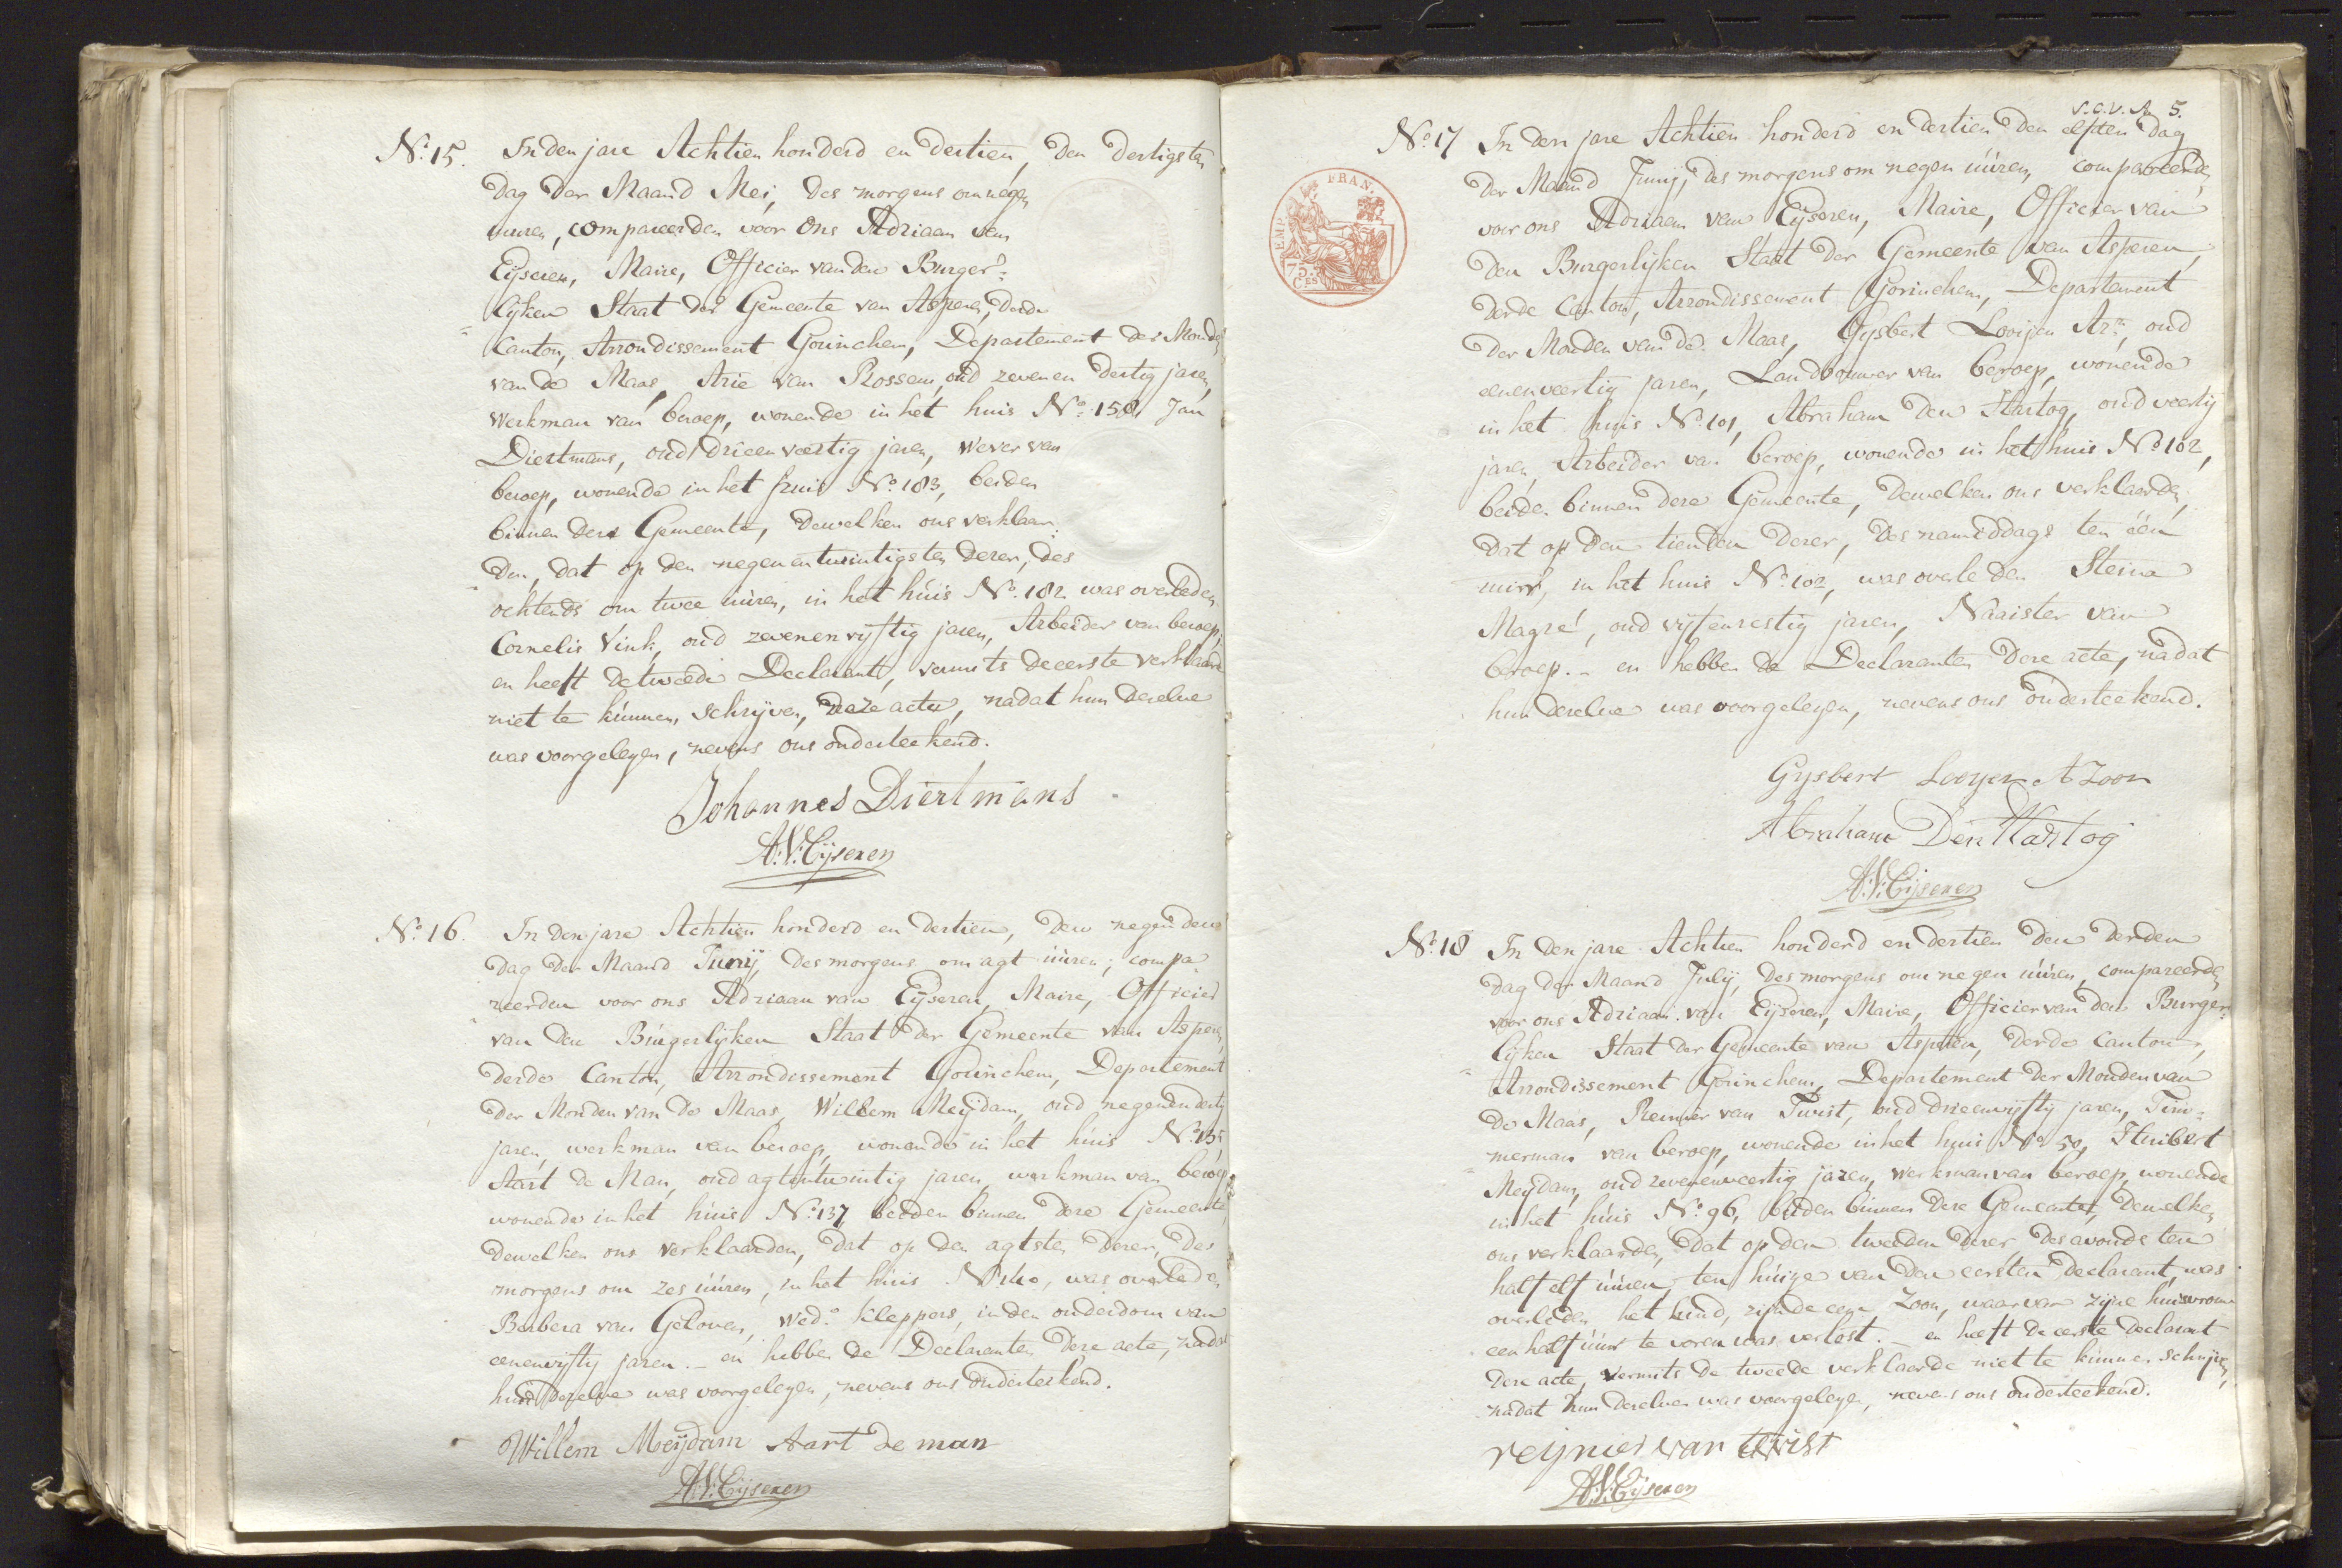 No. 15. In den jare Achtien honderd en dertien, den dertigsten
dag der Maand Mei, des morgens om negen
uuren, compareerden voor Ons Adriaan van
Eijseren, Maire, Officier van den Burger=
lijken Staat der Gemeente van Asperen, derde
Canton, Arrondissement Gorinchem, Departement der Monden
van de Maas, Arie van Rossem, oud zevenen dertig jaren,
werkman van beroep, wonende in het huis No. 158, Jan
Diertmans, oud drieenveertig jaren, wever van
beroep, wonende in het huis No. 183, beiden
binnen deze Gemeente, dewelken ons verklaar=
den, dat op den negenentwintigsten dezer, des
ochtends om twee uuren, in het huis No. 182 was overleden
Cornelis Vink, oud zevenenvijftig jaren, Arbeider van beroep,
en heeft de tweede Declarant, vermits de eerste verklaarde
niet te kunnen schrijven, deze acte, nadat hun dezelve
was voorgelezen, nevens ons onderteekend.
Johannes Diertmans
A:V:Eijseren
No. 16. In den jare Achtien honderd en dertien, den negenden
dag der Maand Junij, des morgens om agt uuren, compa=
reerden voor ons Adriaan van Eijseren, Maire, Officier
van den Burgerlijken Staat der Gemeente van Asperen,
derde Canton, Arrondissement Gorinchem, Departement
der Monden van de Maas, Willem Meijdam, oud negenendertig
jaren, werkman van beroep, wonende in het huis No. 135
Aart de Man, oud agtentwintig jaren, werkman van beroep
wonende in het huis No. 137, beiden binnen deze Gemeente,
dewelken ons verklaarden, dat op den agtsten dezer, des
morgens om zes uuren, in het huis No. 140, was overleden
Barbera van Geloven, Wed. Kleppers, in den ouderdom van
eenenvijftig jaren. - en hebben de Declaranten deze acte, nadat
hun dezelve was voorgelezen, nevens ons onderteekend.
Willem Meijdam Aart de man
A:V:Eijseren
V.C.V.A. 5.
No. 17 In den jare Achtien honderd en dertien den elfden dag
der Maand Junij, des morgens om negen uuren, compareerden
voor ons Adriaan van Eijseren, Maire, Officier van
den Burgerlijken Staat der Gemeente van Asperen,
derde Canton, Arrondissement Gorinchem, Departement
der Monden van de Maas, Gysbert Looijen Azn., oud
eenenveertig jaren, Landbouwer van beroep, wonende
in het huis No. 101, Abraham den Hartog, oud veertig
jaren, Arbeider van beroep, wonende in het huis No. 102,
beiden binnen deze Gemeente, dewelken ons verklaarden,
dat op den tienden dezer, des namiddags ten één
uur, in het huis No. 102, was overleden Steina
Magré, oud vijfenzestig jaren, Naaister van
beroep. - en hebben de Declaranten deze acte, nadat
hun dezelve was voorgelezen, nevens ons onderteekend.
EMP. FRAN.
75.
CES
Gysbert Looyen A Zoon
Abraham Den Hartog
A:V:Eijseren
No. 18 In den jare Achtien honderd en dertien den derden
dag der Maand Julij, des morgens om negen uuren, compareerden
voor ons Adriaan van Eijseren, Maire, Officier van den Burger=
lijken Staat der Gemeente van Asperen, derde Canton,
Arrondissement Gorinchem, Departement der Monden van
de Maas, Reinier van Twist, oud drieenvijftig jaren, Tim=
merman van beroep, wonende in het huis No. 50, Huibert
Meijdam, oud zevenenveertig jaren, werkman van beroep, wonende
in het huis No. 96, beiden binnen deze Gemeente, dewelken
ons verklaarden, dat op den tweeden dezer des avonds ten
half elf uuren, ten huize van den eersten Declarant, was
overleden het kind, zijnde een Zoon, waarvan zijne huisvrouw
een half uur te voren was verlost. - en heeft de eerste Declarant
deze acte, vermits de tweede verklaarde niet te kunnen schrijven,
nadat hun dezelve was voorgelezen, nevens ons onderteekend.
reijnier van twist
A:V:Eijseren